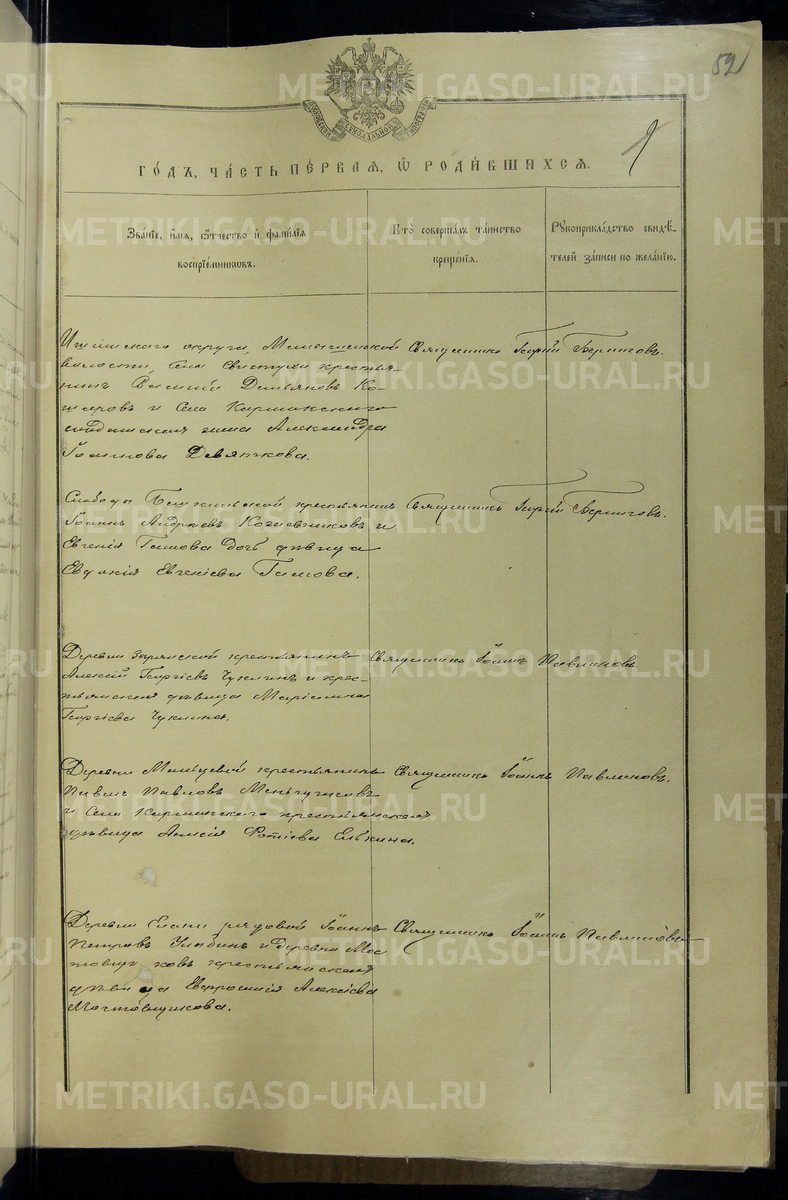 59
9
ГОДЪ, ЧАСТЬ ПЕРВАЯ, Ѡ РОДИВШИХСЯ.
ЗВАНІЕ, ИМЯ, ѾЧЕСТВО И ФАМИЛІЯ
ВОСПРІЕМНИКОВЪ.
КТО СОВЕРШАЛЪ ТАИНСТВО
КРЕЩЕНІЯ.
РУКОПРИКЛАДСТВО СВИДѢ-
ТЕЛЕЙ ЗАПИСИ ПО ЖЕЛАНІЮ.
Ишимскаго округа,
волости, села крестья-
нинъ Василій Демьяновъ Ко-
шкаровъ и Села Кармакскаго
солдатская жена Александра
Іоаннова Девяткова.
Священникъ Георгій
Слободы крестьянинъ
Іоаннъ Андреевъ Кожевниковъ и
Евгенія дочь дѣвица
Евдокія Евгеніева
Священникъ Георгій
Деревни крестьянинъ
Алексій Георгіевъ Чуклинъ и крес-
тьянская дѣвица
Георгіева Чуклина.
Священникъ Іоаннъ Павлиновъ
Деревни Мальцевой крестьянинъ
Павелъ Павловъ
и Села Кармакскаго крестьянская
дѣвица Анисія Фотіева Елькина.
Священникъ Іоаннъ Павлиновъ.
Деревни Елани рядовой Іоаннъ
Петровъ и Деревни Мос-
крестьянская
дѣвица Евфросинія Алексіева
Мостовщикова.
Священникъ Іоаннъ Павлиновъ
METRIKI.GASO-URAL.RU